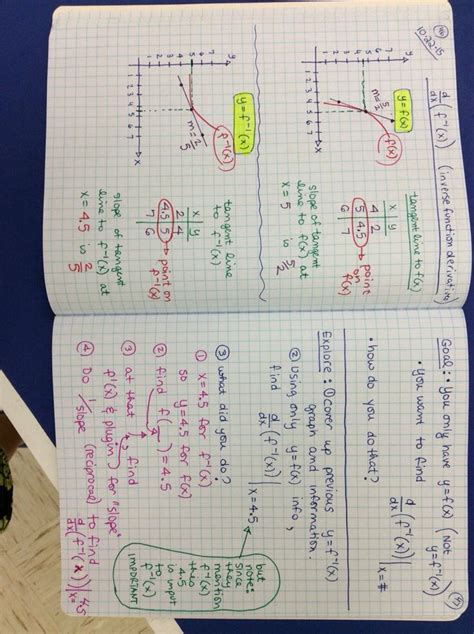 46
10.22.15
d/dx (f⁻¹(x)) (inverse function derivative)
y=f(x)
f(x)
m=5/2
y
x
1 2 3 4 5 6 7
tangent line to f(x)
x | y
4 | 2
5 | 4.5 → point on f(x)
6 | 7
slope of tangent
line to f(x) at
x = 5 is 5/2
y=f⁻¹(x)
f⁻¹(x)
m=2/5
y
x
1 2 3 4 5 6 7
tangent line
to f⁻¹(x)
x | y
2 | 4
4.5 | 5 → point on f⁻¹(x)
7 | 6
slope of tangent
line to f⁻¹(x) at
x = 4.5 is 2/5
47
Goal: • you only have y=f(x) (Not y=f⁻¹(x))
• you want to find d/dx (f⁻¹(x))| x=#
• how do you do that?
Explore: ① cover up previous y=f⁻¹(x)
graph and information.
② Using only y=f(x) info,
find d/dx (f⁻¹(x))| x=4.5
③ what did you do?
① x=4.5 for f⁻¹(x)
so y=4.5 for f(x)
② find f(__)=4.5
③ at that ↓, find
f'(x) & plug in ↓ for "slope"
④ Do 1/slope (reciprocal) to find
d/dx (f⁻¹(x))| x=4.5
but
note:
since
they
mention
f⁻¹(x)
the
4.5
is input
to
f⁻¹(x)
IMPORTANT